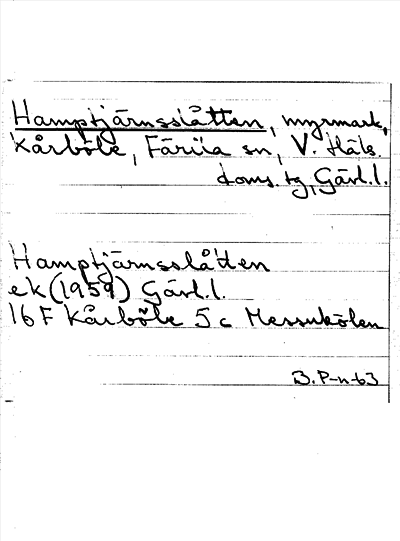 Hamptjärnsslåtten, myrmark,
Kårböle, Färila sn, V. Häls.
doms. tg, Gävl.l.
Hamptjärnsslåtten
ek (1959) Gävl.l.
16 F Kårböle 5 c Messukölen
B. P-n-63